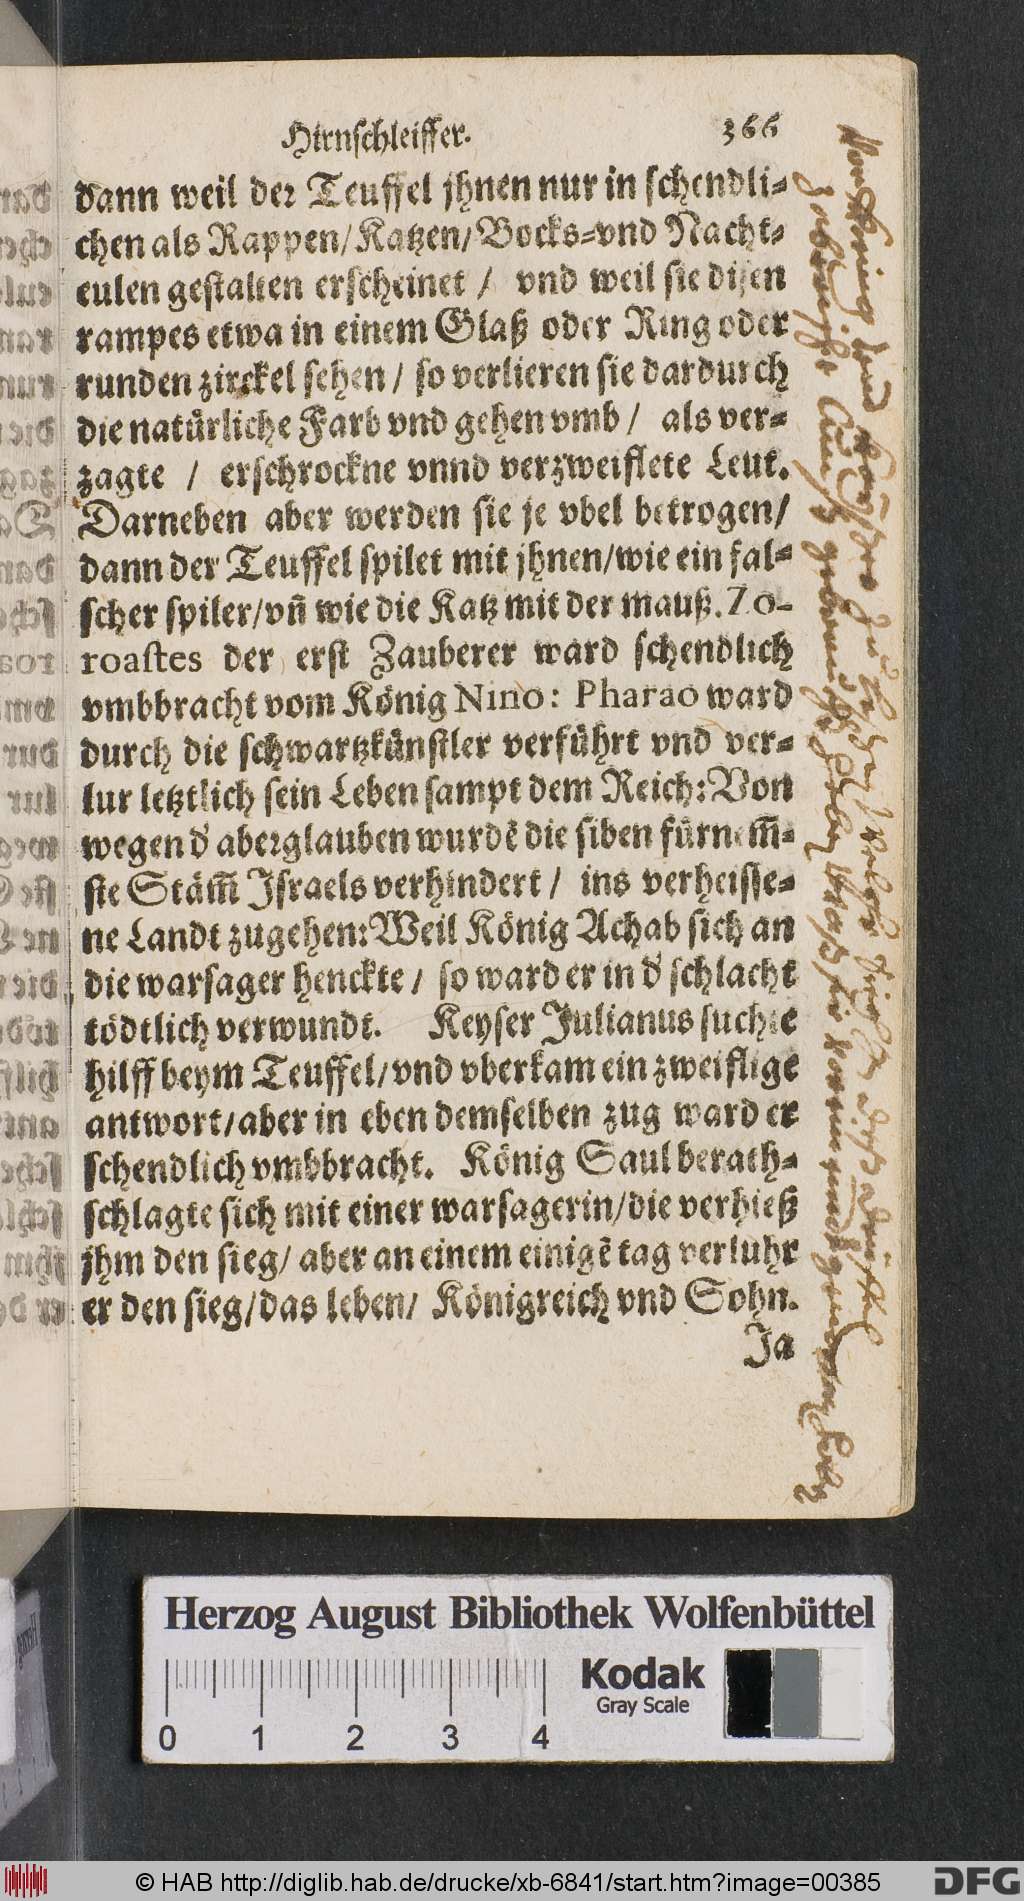 Hirnschleiffer. 366
dann weil der Teuffel jhnen nur in schendli-
chen als Rappen/ Katzen/ Bocks-vnd Nacht-
eulen gestalten erscheinet / vnd weil sie disen
rampes etwa in einem Glaß oder Ring oder
runden zirckel sehen / so verlieren sie dardurch
die natürliche Farb vnd gehen vmb / als ver-
zagte / erschrockne vnnd verzweiflete Leut.
Darneben aber werden sie je vbel betrogen/
dann der Teuffel spilet mit jhnen/wie ein fal-
scher spiler/vñ wie die Katz mit der mauß. Zo-
roastes der erst Zauberer ward schendlich
vmbbracht vom König Nino: Pharao ward
durch die schwartzkünstler verführt vnd ver-
lur letztlich sein Leben sampt dem Reich: Von
wegen d' aberglauben wurdẽ die siben fürnem̃-
ste Stäm̃ Israels verhindert / ins verheisse-
ne Landt zugehen: Weil König Achab sich an
die warsager henckte / so ward er in d' schlacht
tödtlich verwundt. Keyser Julianus suchte
hilff beym Teuffel/vnd vberkam ein zweiflige
antwort/aber in eben demselben zug ward er
schendlich vmbbracht. König Saul berath-
schlagte sich mit einer warsagerin/die verhieß
jhm den sieg/ aber an einem einigẽ tag verluhr
er den sieg/das leben/ Königreich vnd Sohn.
Ja
Herzog August Bibliothek Wolfenbüttel
Kodak
Gray Scale
0 1 2 3 4
© HAB http://diglib.hab.de/drucke/xb-6841/start.htm?image=00385
DFG